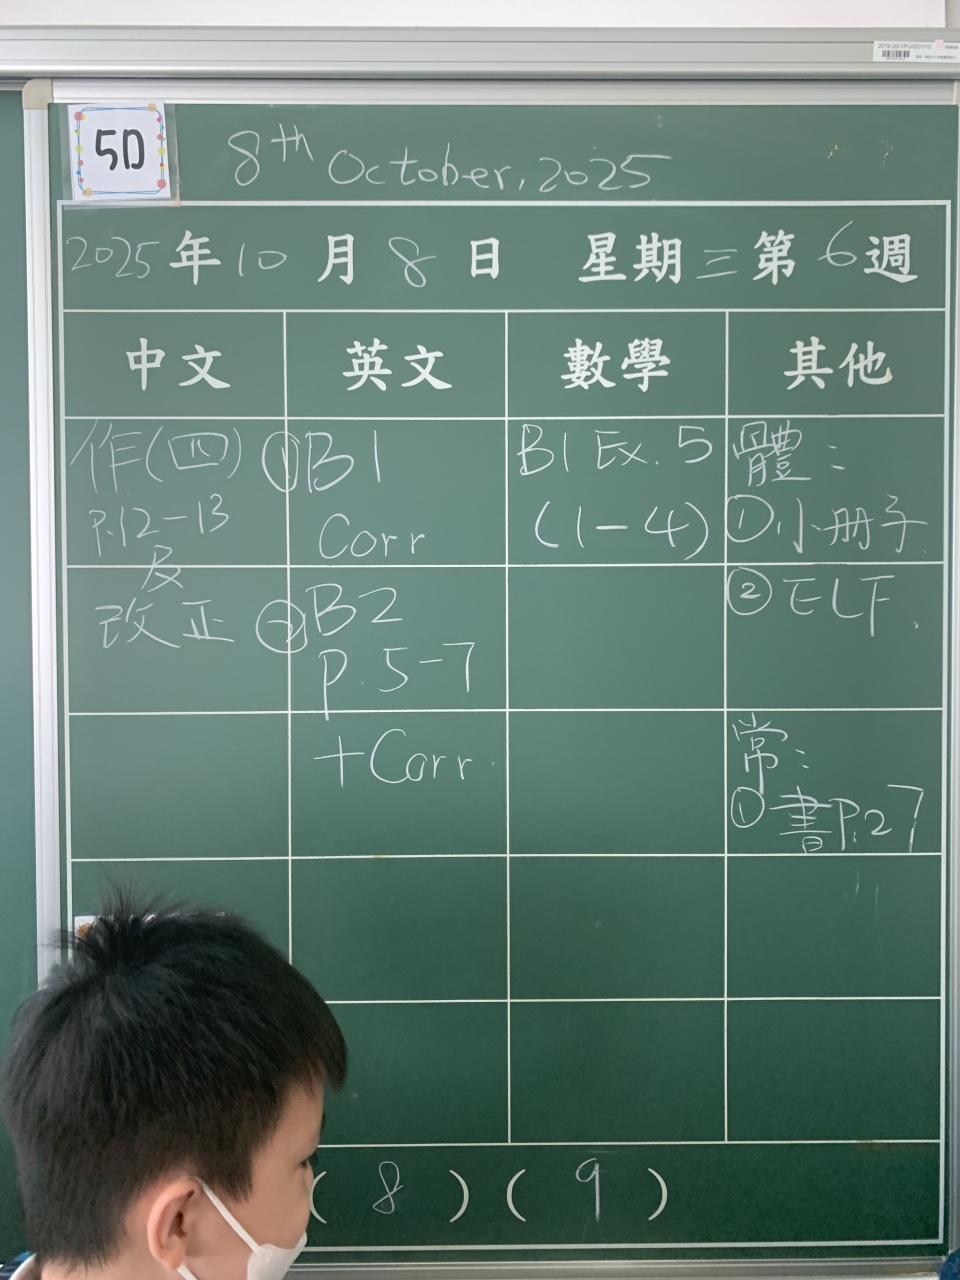 5D
8th October, 2025
2025年10月8日 星期三第6週
中文
英文
數學
其他
作(四)
P.12-13
及
改正
①B1
Corr
②B2
P.5-7
+Corr.
B1 Ex. 5
(1-4)
體:
①小冊子.
②ELF.
常:
①書P.27
(8)(9)